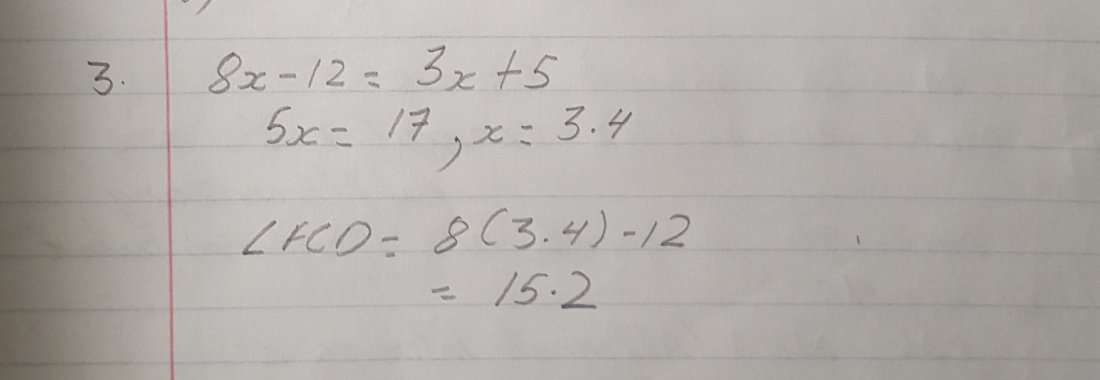 3. 8x-12 = 3x+5
5x = 17, x = 3.4
∠FCD = 8(3.4)-12
= 15.2